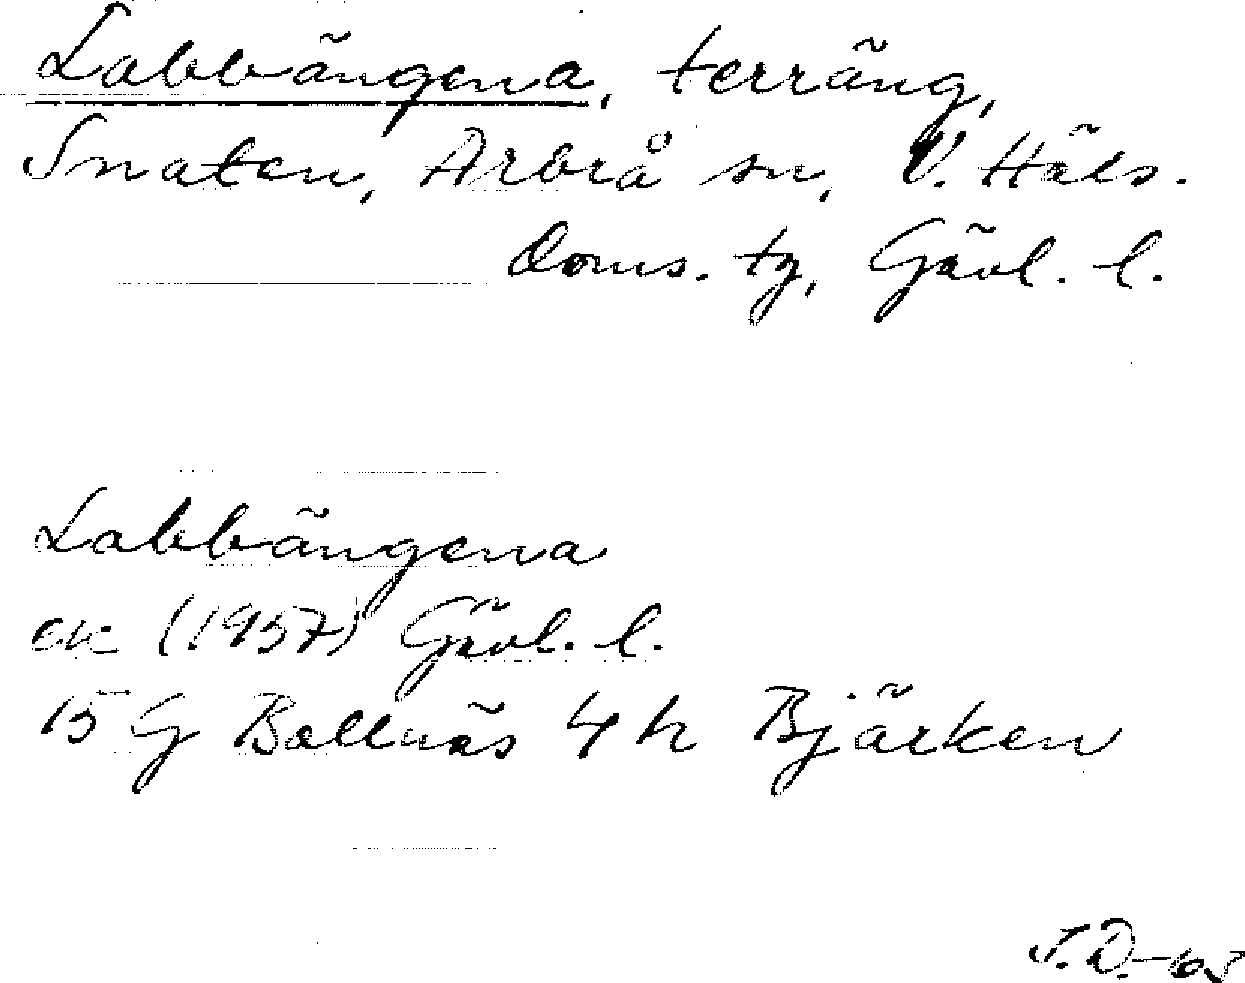 Labbängena, terräng,
Snaten, Arbrå sn, V. Häls.
Doms. tg, Gävl. l.
Labbängena
ek (1957) Gävl. l.
15 G Bollnäs 4 h Bjärken
J.D.-65